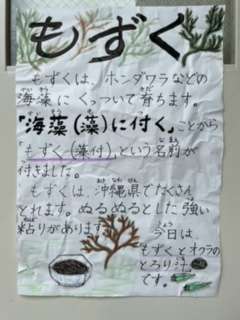 もずく
もずくは、ホンダワラなどの
海藻にくっついて育ちます。
「海藻(藻)に付く」ことから
「もずく(藻付)」という名前が
付きました。
もずくは、沖縄県でたくさん
とれます。ぬるぬるとした強い
粘りがあります。
今日は
もずくとオクラの
とろり汁
です。